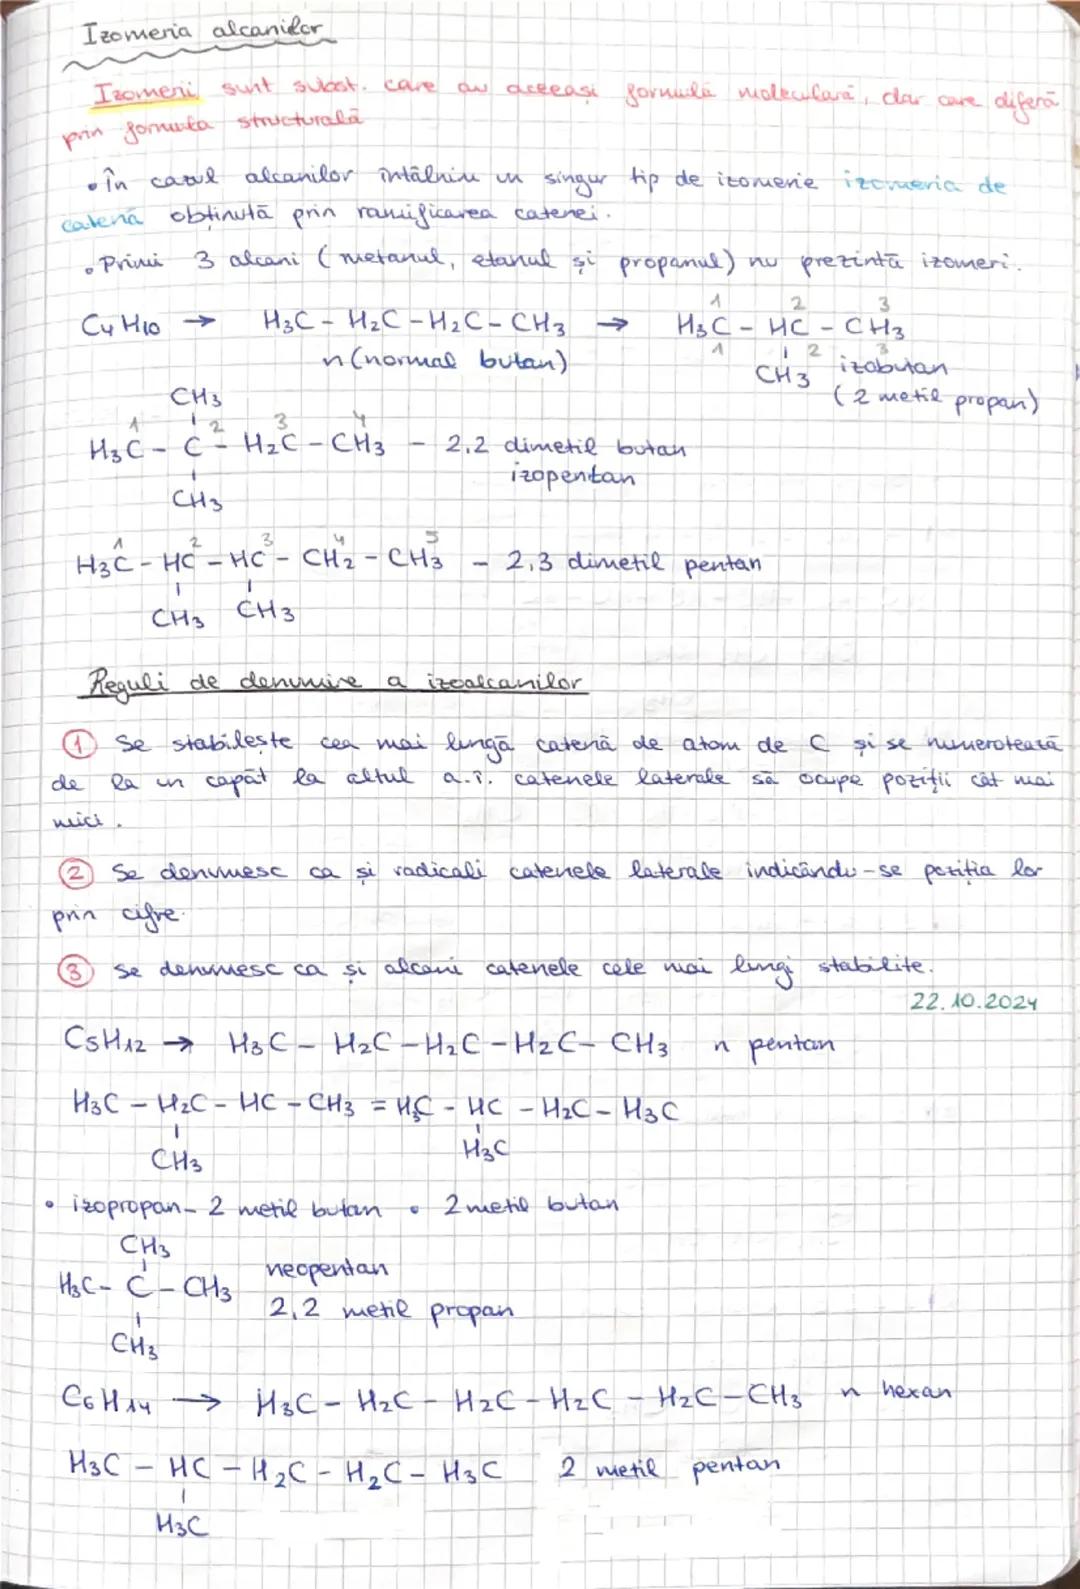 Izomeria alcanilor
Izomeri sunt subst. care au aceeași formulă moleculară, dar care diferă
prin formula structurală
• În cazul alcanilor întâlnim un singur tip de izomerie izomeria de
catenă obținută prin ramificarea catenei.
• Primii 3 alcani (metanul, etanul și propanul) nu prezintă izomeri.
1 2 3
C4H10 → H3C - H2C - H2C - CH3 → H3C - HC - CH3
1 2 3
n (normal butan) CH3 izobutan
(2 metil propan)
CH3
1 2 3 4
H3C - C - H2C - CH3 - 2,2 dimetil butan
izopentan
CH3
1 2 3 4 5
H3C - HC - HC - CH2 - CH3 - 2,3 dimetil pentan
CH3 CH3
Reguli de denumire a izoalcanilor
① Se stabilește cea mai lungă catenă de atom de C și se numerotează
de la un capăt la altul a.î. catenele laterale să ocupe poziții cât mai
mici.
② Se denumesc ca și radicali catenele laterale indicându-se poziția lor
prin cifre.
③ Se denumesc ca și alcani catenele cele mai lungi stabilite.
22.10.2024
C5H12 → H3C - H2C - H2C - H2C - CH3 n pentan
H3C - H2C - HC - CH3 = H3C - HC - H2C - H3C
CH3 H3C
• izopropan - 2 metil butan • 2 metil butan
CH3
H3C - C - CH3 neopentan
2,2 metil propan
CH3
C6H14 → H3C - H2C - H2C - H2C - H2C - CH3 n hexan
H3C - HC - H2C - H2C - H3C 2 metil pentan
H3C